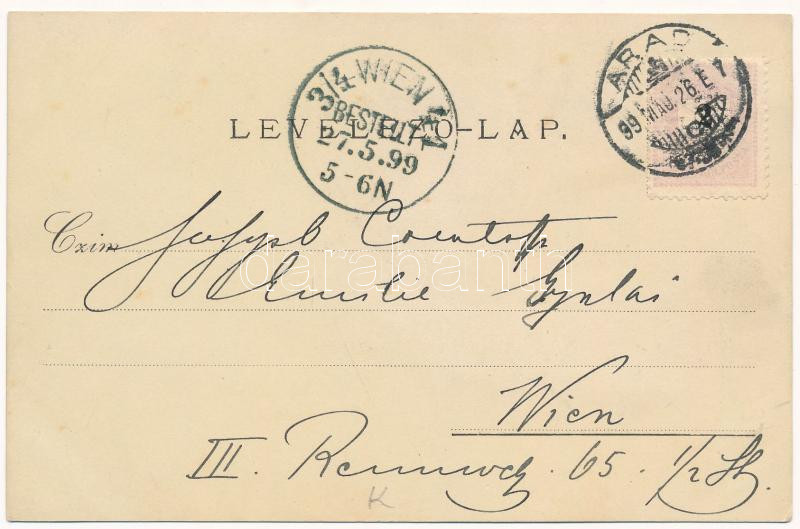 ARAD
99 MÁJ. 26. E 7
3/4 WIEN 4/1
BESTELLT
27.5.99
5-6N
LEVELEZŐ-LAP.
Czim
darabanth
Emilie Gyulai
Wien
III. Rennweg. 65. 1/2 St.
K